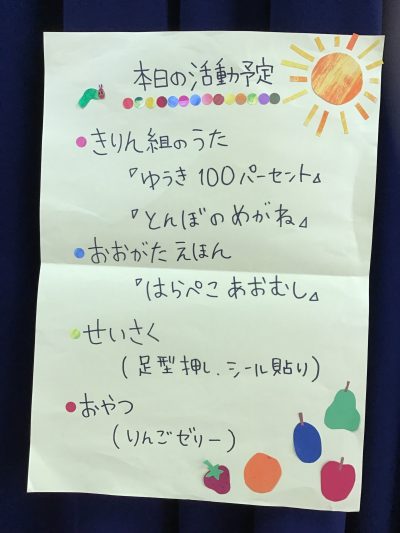 本日の活動予定
きりん組のうた
『ゆうき100パーセント』
『とんぼのめがね』
おおがたえほん
『はらぺこあおむし』
せいさく
(足型押し、シール貼り)
おやつ
(りんごゼリー)